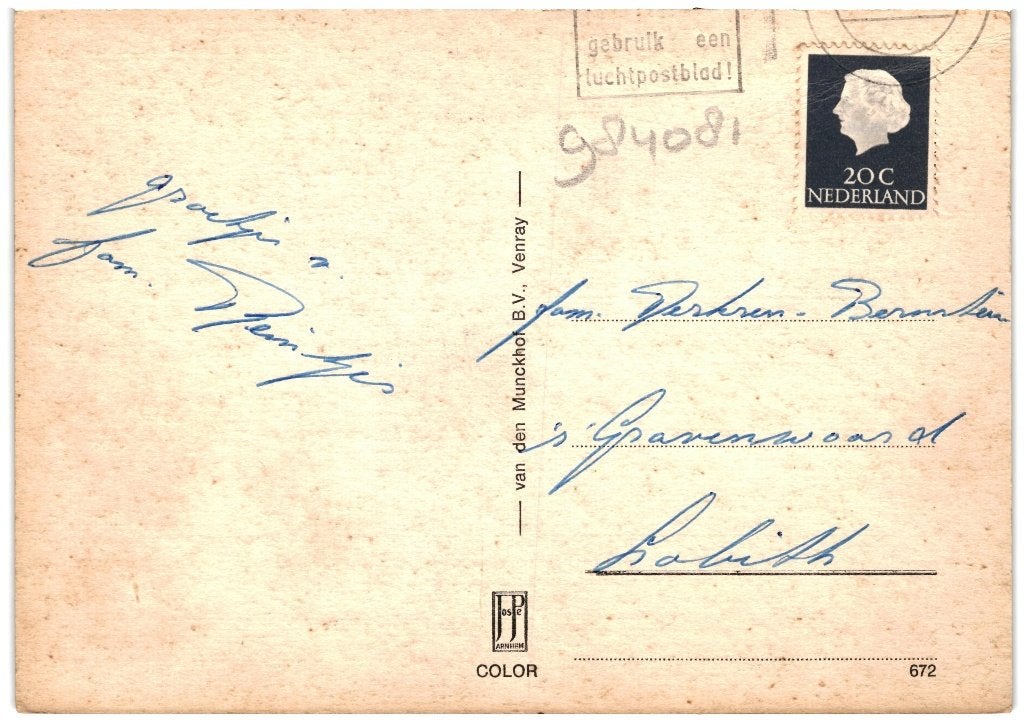 gebruik een
luchtpostblad!
984081
20 C
NEDERLAND
groetjes
fam.
fam. Derksen - Bernstein
's Gravenwaard
Lobith
van den Munckhof B.V., Venray
JosPé
ARNHEM
COLOR
672